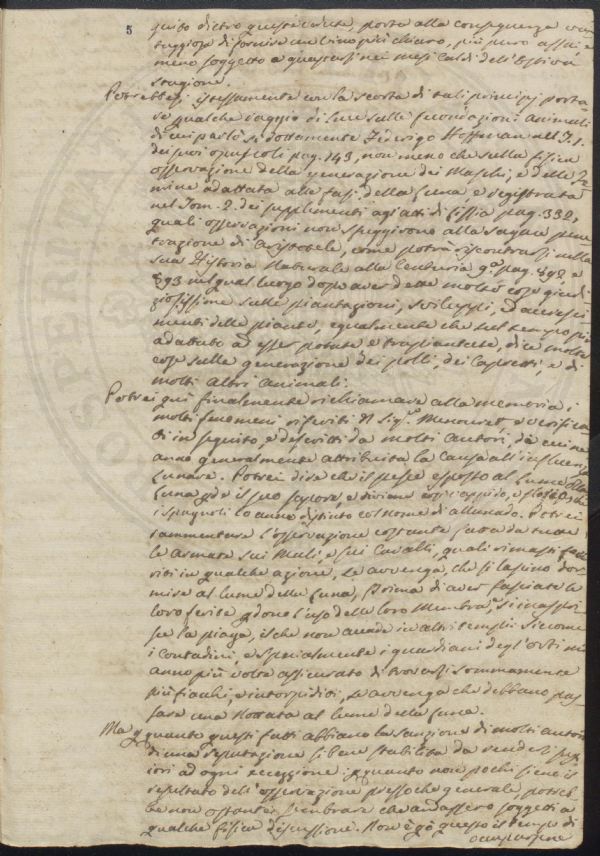 5
guito dietro queste vedute, porta alla conseguenza van
taggiosa di fornire un vino più chiaro, più puro assai, e
meno soggetto a guastarsi nei mesi caldi dell'Estiva
stagione.
Potrebbesi istessamente con la scorta di tali principj porta
re qualche raggio di luce sulle fecondazioni animali
di cui parlò sì dottamente Federigo Hoffman nel T. 1.
dei suoi opuscoli pag. 143, non meno che sulla fisica
osservazione della generazione dei Maschi, e delle Fe
mine adattata alle fasi della Luna e registrata
nel Tom. 2. dei supplimenti agli atti di Lissia pag. 332,
quali osservazioni non sfuggirono alla sagace pene
trazione di Aristotele, come potrà riscontrarsi nella
sua Historia Naturale alla Centuria 9ª pag. 892 e
893 nel qual luogo dopo aver dette molte cose giudi
ziosissime sulle piantazioni, sviluppi, ed accresci
menti delle piante, egualmente che sul tempo più
adattato ad esser potate e trapiantate, dice molte
cose sulla generazione dei polli, dei Capretti, e di
molti altri animali.
Potrei qui finalmente richiamare alla memoria i
molti fenomeni riferiti dal Sigr. Menouret e verifica
ti in seguito, e descritti da molti autori, de cui ne
anno generalmente attribuita la Causa all'influenza
Lunare. Potrei dire che il pesce esposto al Lume della
Luna perde il suo sapore, e diviene e floscio, che
i spagnoli lo anno distinto col nome di allunado. Potrei
rammentare l'osservazione costante fatta da tutte
le armate sui Muli, e sui Cavalli, quali rimasti feriti
in qualche azione, se avvenga, che si lascino dor
mire al lume della Luna, Prima di aver fasciate le
loro ferite perdono l'uso delle loro Membra, si inaspri
sce la piaga, il che non accade in altri tempi: siccome
i contadini, e specialmente i guardiani degl'orti mi
anno più volte assicurato di trovarsi sommamente
più fiachi, e intorpiditi, se avvenga che debbano pas
sare una Nottata al lume della Luna.
Ma per quanto questi fatti abbiano la sanzione di molti autori
di una reputazione sì bene stabilita da render supe
riori ad ogni eccezzione: per quanto non pochi siene il
resultato dell'osservazione pressoche generale, potreb
be non ostante sembrare che andassero soggetti a
qualche fisica discussione. Non è per questo il tempo di